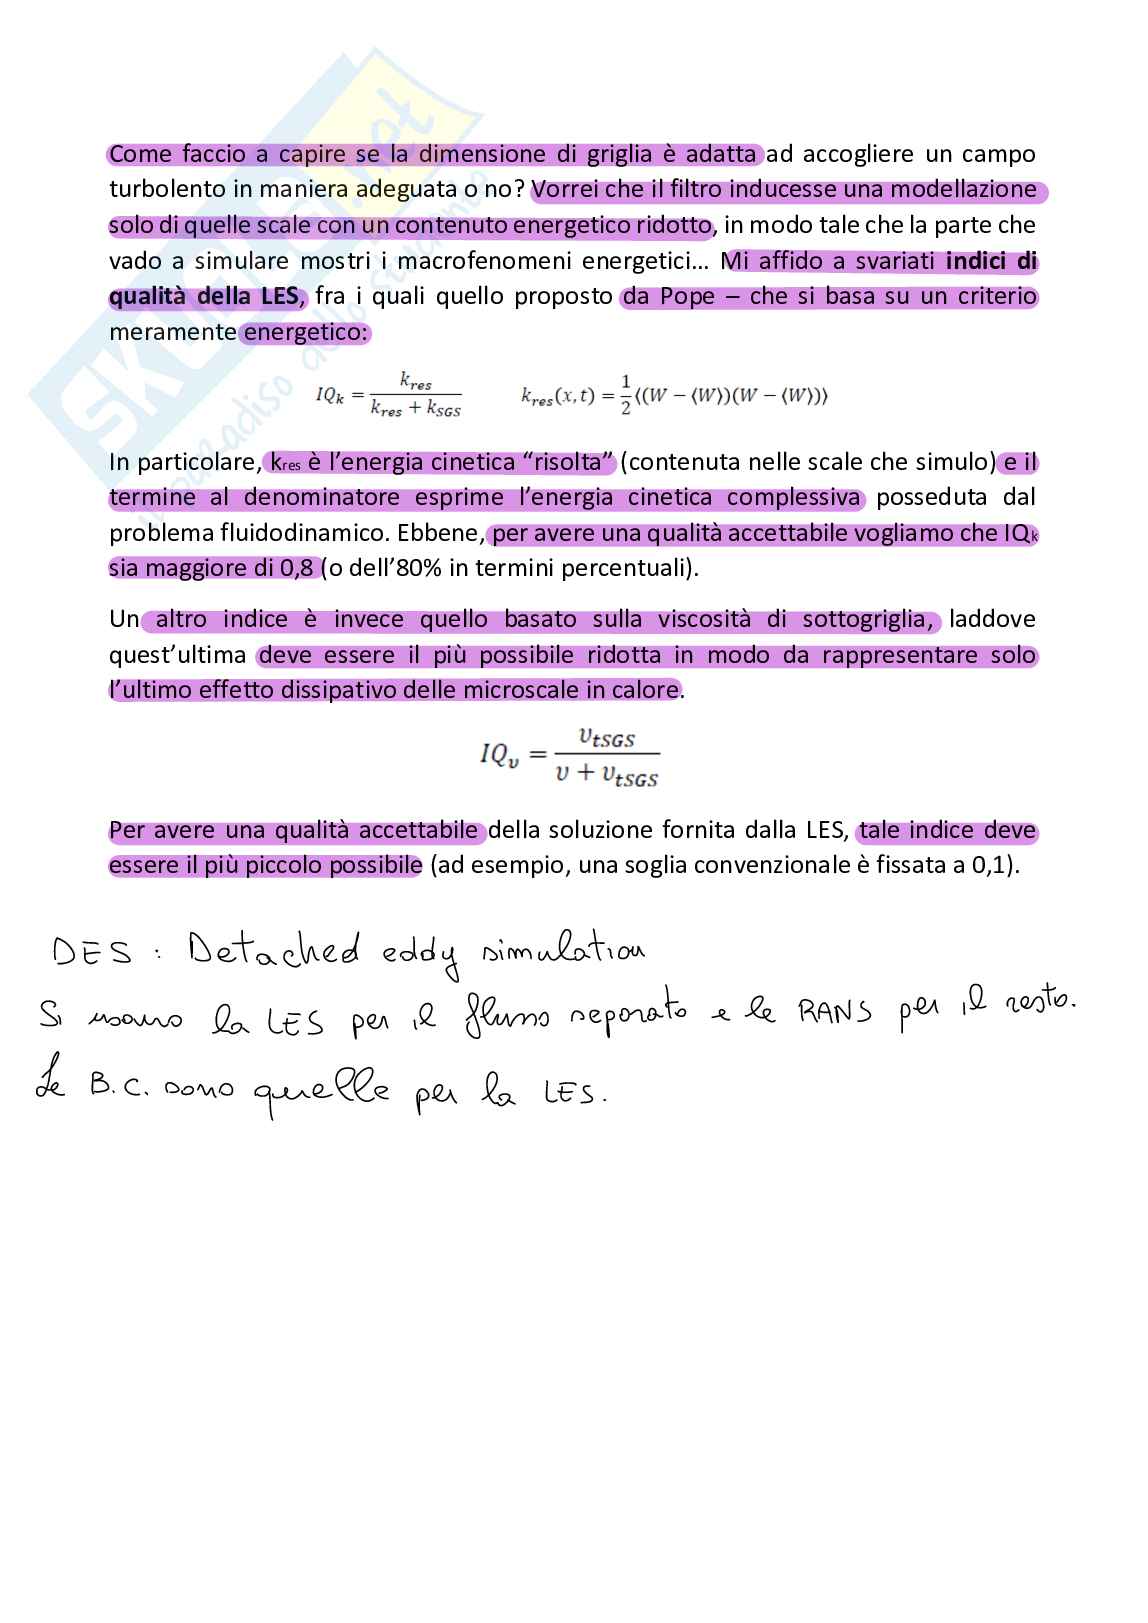 Come faccio a capire se la dimensione di griglia è adatta ad accogliere un campo
turbolento in maniera adeguata o no? Vorrei che il filtro inducesse una modellazione
solo di quelle scale con un contenuto energetico ridotto, in modo tale che la parte che
vado a simulare mostri i macrofenomeni energetici… Mi affido a svariati indici di
qualità della LES, fra i quali quello proposto da Pope – che si basa su un criterio
meramente energetico:
IQ_k = k_res / (k_res + k_SGS)    k_res(x, t) = 1/2 ⟨(W − ⟨W⟩)(W − ⟨W⟩)⟩
In particolare, kres è l’energia cinetica “risolta” (contenuta nelle scale che simulo) e il
termine al denominatore esprime l’energia cinetica complessiva posseduta dal
problema fluidodinamico. Ebbene, per avere una qualità accettabile vogliamo che IQk
sia maggiore di 0,8 (o dell’80% in termini percentuali).
Un altro indice è invece quello basato sulla viscosità di sottogriglia, laddove
quest’ultima deve essere il più possibile ridotta in modo da rappresentare solo
l’ultimo effetto dissipativo delle microscale in calore.
IQ_υ = υ_tSGS / (υ + υ_tSGS)
Per avere una qualità accettabile della soluzione fornita dalla LES, tale indice deve
essere il più piccolo possibile (ad esempio, una soglia convenzionale è fissata a 0,1).
DES : Detached eddy simulation
Si usano la LES per il flusso separato e le RANS per il resto.
Le B.C. sono quelle per la LES.